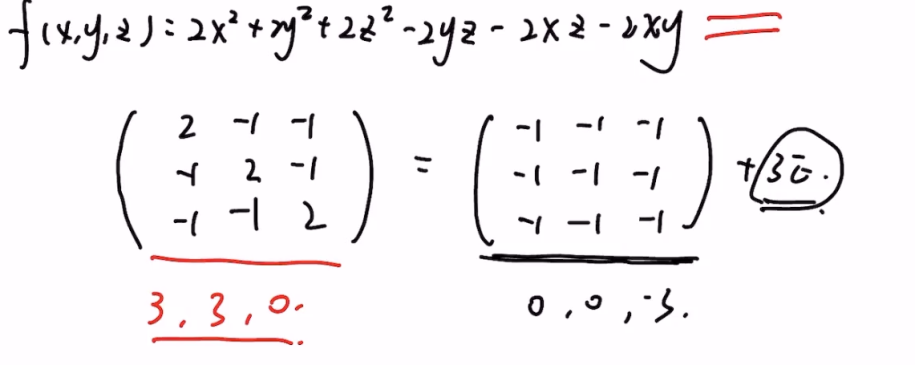 f(x,y,z) = 2x² + 2y² + 2z² - 2yz - 2xz - 2xy =
( 2 -1 -1 ) = ( -1 -1 -1 ) + 3E.
( -1 2 -1 ) ( -1 -1 -1 )
( -1 -1 2 ) ( -1 -1 -1 )
3, 3, 0. 0, 0, -3.